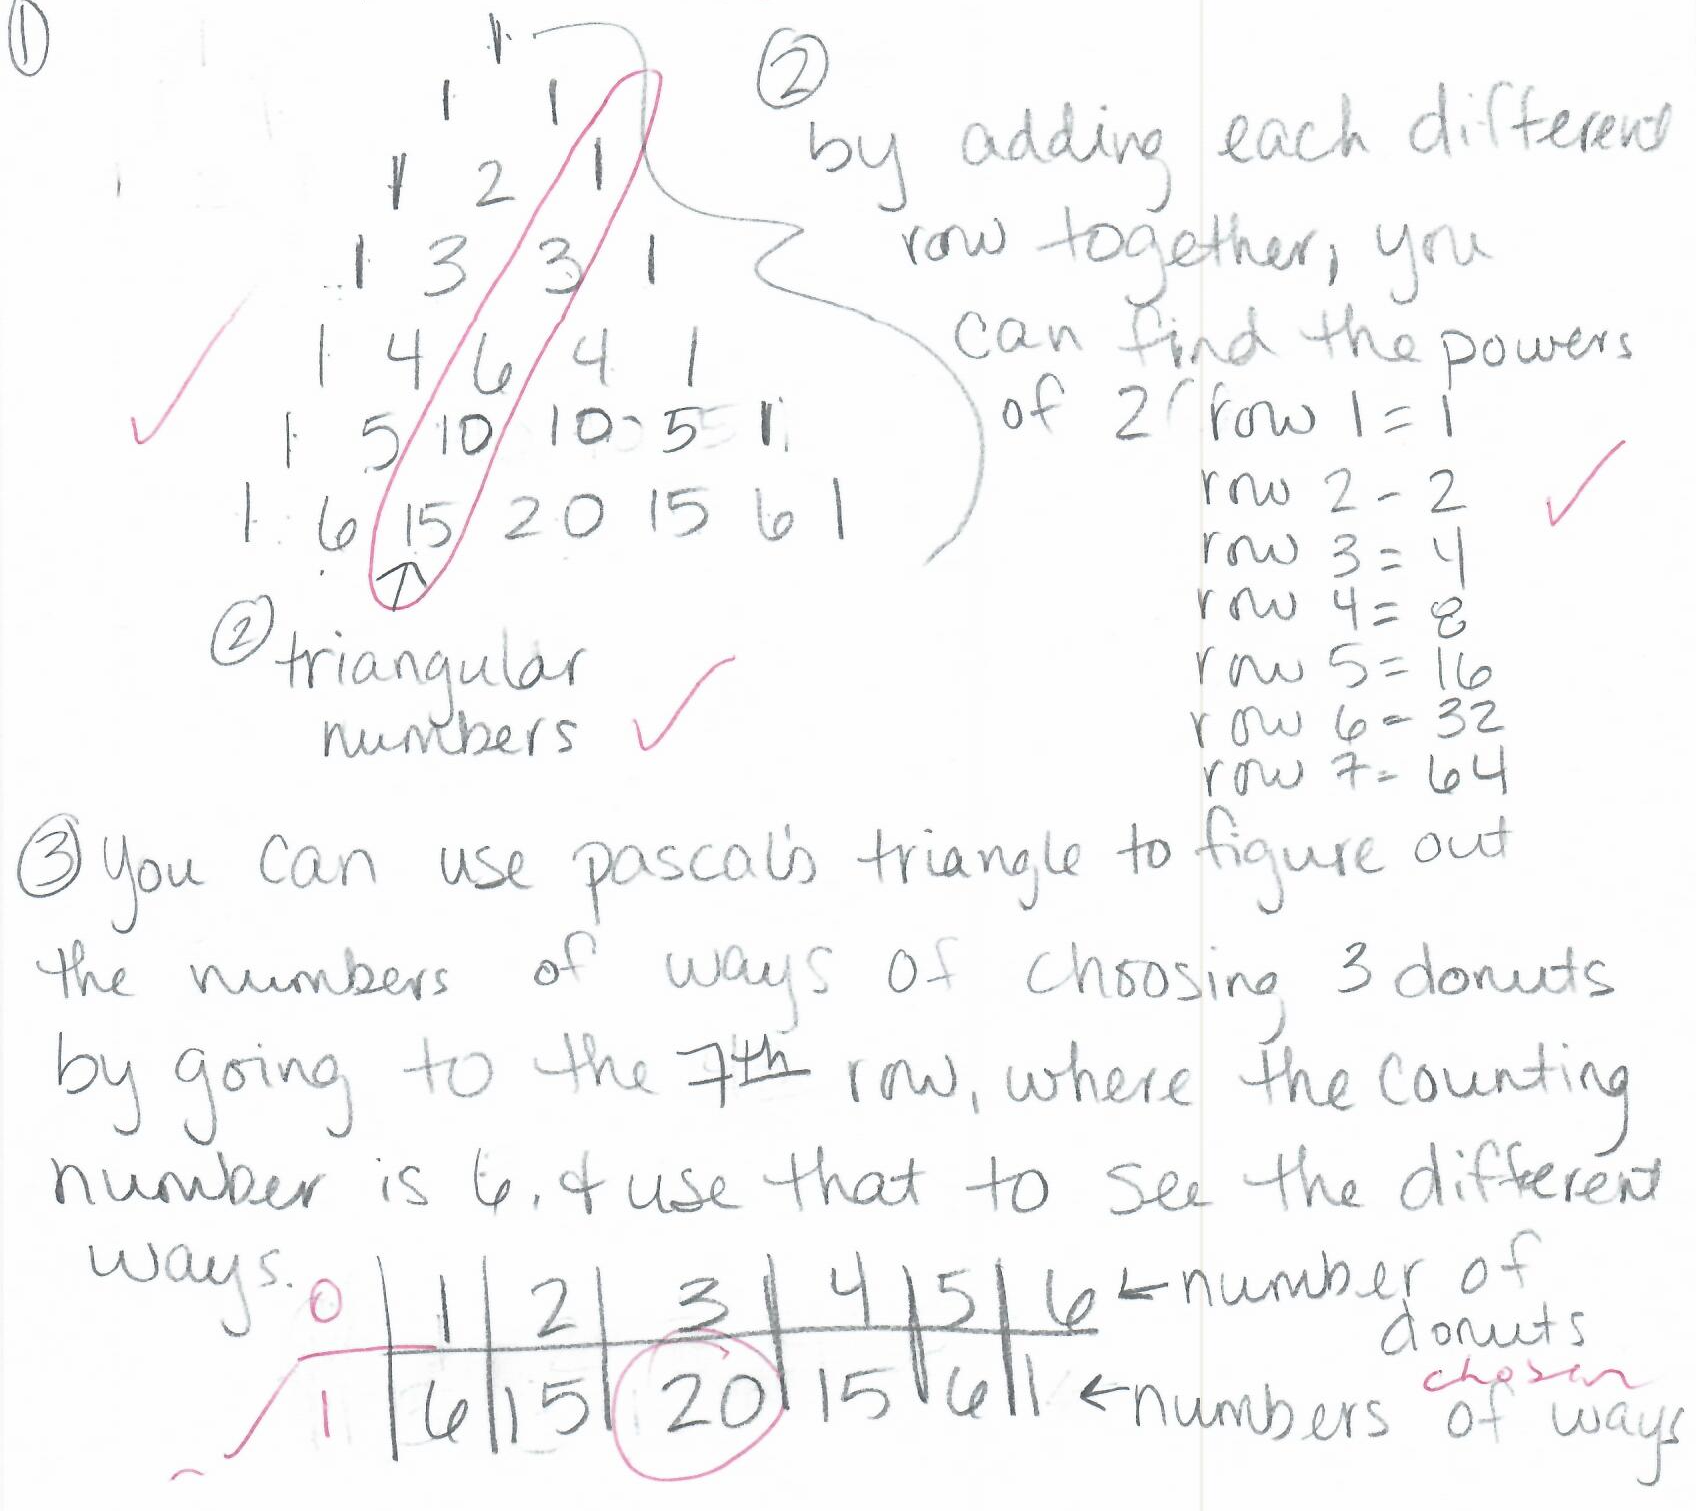 ①
1
1 1
1 2 1
1 3 3 1
1 4 6 4 1
1 5 10 10 5 1
1 6 15 20 15 6 1
② triangular
numbers
②
by adding each different
row together, you
can find the powers
of 2 (row 1 = 1
row 2 - 2
row 3 = 4
row 4 = 8
row 5 = 16
row 6 = 32
row 7 = 64
③ You can use pascal's triangle to figure out
the numbers of ways of choosing 3 donuts
by going to the 7th row, where the counting
number is 6, & use that to see the different
ways.
0 1 2 3 4 5 6 ← number of
donuts
chosen
1 6 15 20 15 6 1 ← numbers of ways